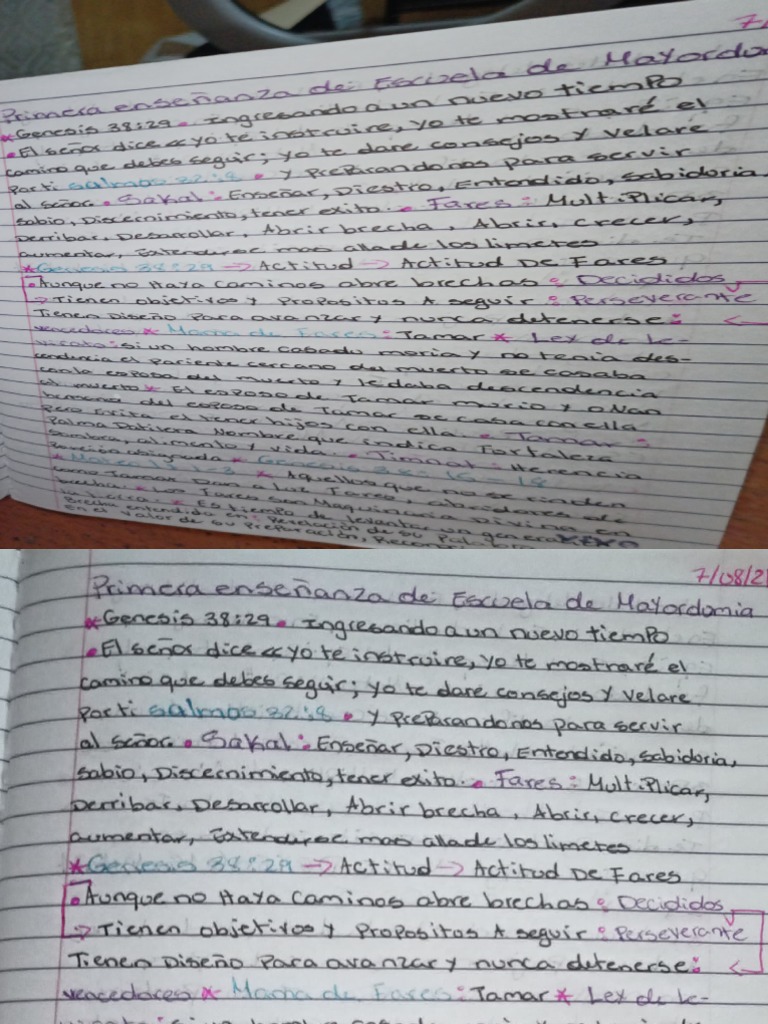 7/
Primera enseñanza de: Escuela de Mayordo
*Genesis 38:29. Ingresando a un nuevo tiempo
• El señor dice «yo te instruire, yo te mostraré el
camino que debes seguir; yo te dare consejos y velare
porti salmos 32:8 • y preparandonos para servir
al señor. • Sakal: Enseñar, Diestro, Entendido, sabiduria,
sabio, Discernimiento, tener exito. • Fares: Multiplicar,
Derribar, Desarrollar, Abrir brecha, Abrir, crecer,
aumentar, Extenderse mas alla de los limetes
*Genesis 38:29 → Actitud → Actitud De Fares
• Aunque no Haya caminos abre brechas: Decididos
→ Tienen objetivos y Propositos A seguir: Perseverante
Tienen Diseño Para avanzar y nunca detenerse:
vencedores * Mama de Fares: Tamar * Ley de le-
virato: si un hombre casado moria y no tenia des-
cendencia el pariente cercano del muerto se casaba
con la esposa del muerto y le daba descendencia
al muerto * El esposo de Tamar murio y onan
hermano del esposo de Tamar se casa con ella
pero evita el tener hijos con ella. • Tamar:
Palma Datilera Nombre que indica Fortaleza
sombra, alimento y vida. • Timnat: Herencia
Porción asignada * Genesis 38: 16-18
* Mateo 1: 1-3 * Aquellos que no se rinden
como Tamar Dan a luz Fares, abridores de
brecha * Los Fares son Maquinaria Divina en
la tierra. * Es tiempo de levantar un genera
Brecha entendido en: Revelación de su Palabra
en el valor de su Preparación,
7/08/21
Primera enseñanza de: Escuela de Mayordomia
*Genesis 38:29. Ingresando a un nuevo tiempo
• El señor dice «yo te instruire, yo te mostraré el
camino que debes seguir; yo te dare consejos y velare
porti salmos 32:8 • y preparandonos para servir
al señor. • Sakal: Enseñar, Diestro, Entendido, sabiduria,
sabio, Discernimiento, tener exito. • Fares: Multiplicar,
Derribar, Desarrollar, Abrir brecha, Abrir, crecer,
aumentar, Extenderse mas alla de los limetes
*Genesis 38:29 → Actitud → Actitud De Fares
• Aunque no Haya caminos abre brechas: Decididos
→ Tienen objetivos y Propositos A seguir: Perseverante
Tienen Diseño Para avanzar y nunca detenerse:
vencedores * Mama de Fares: Tamar * Ley de le-